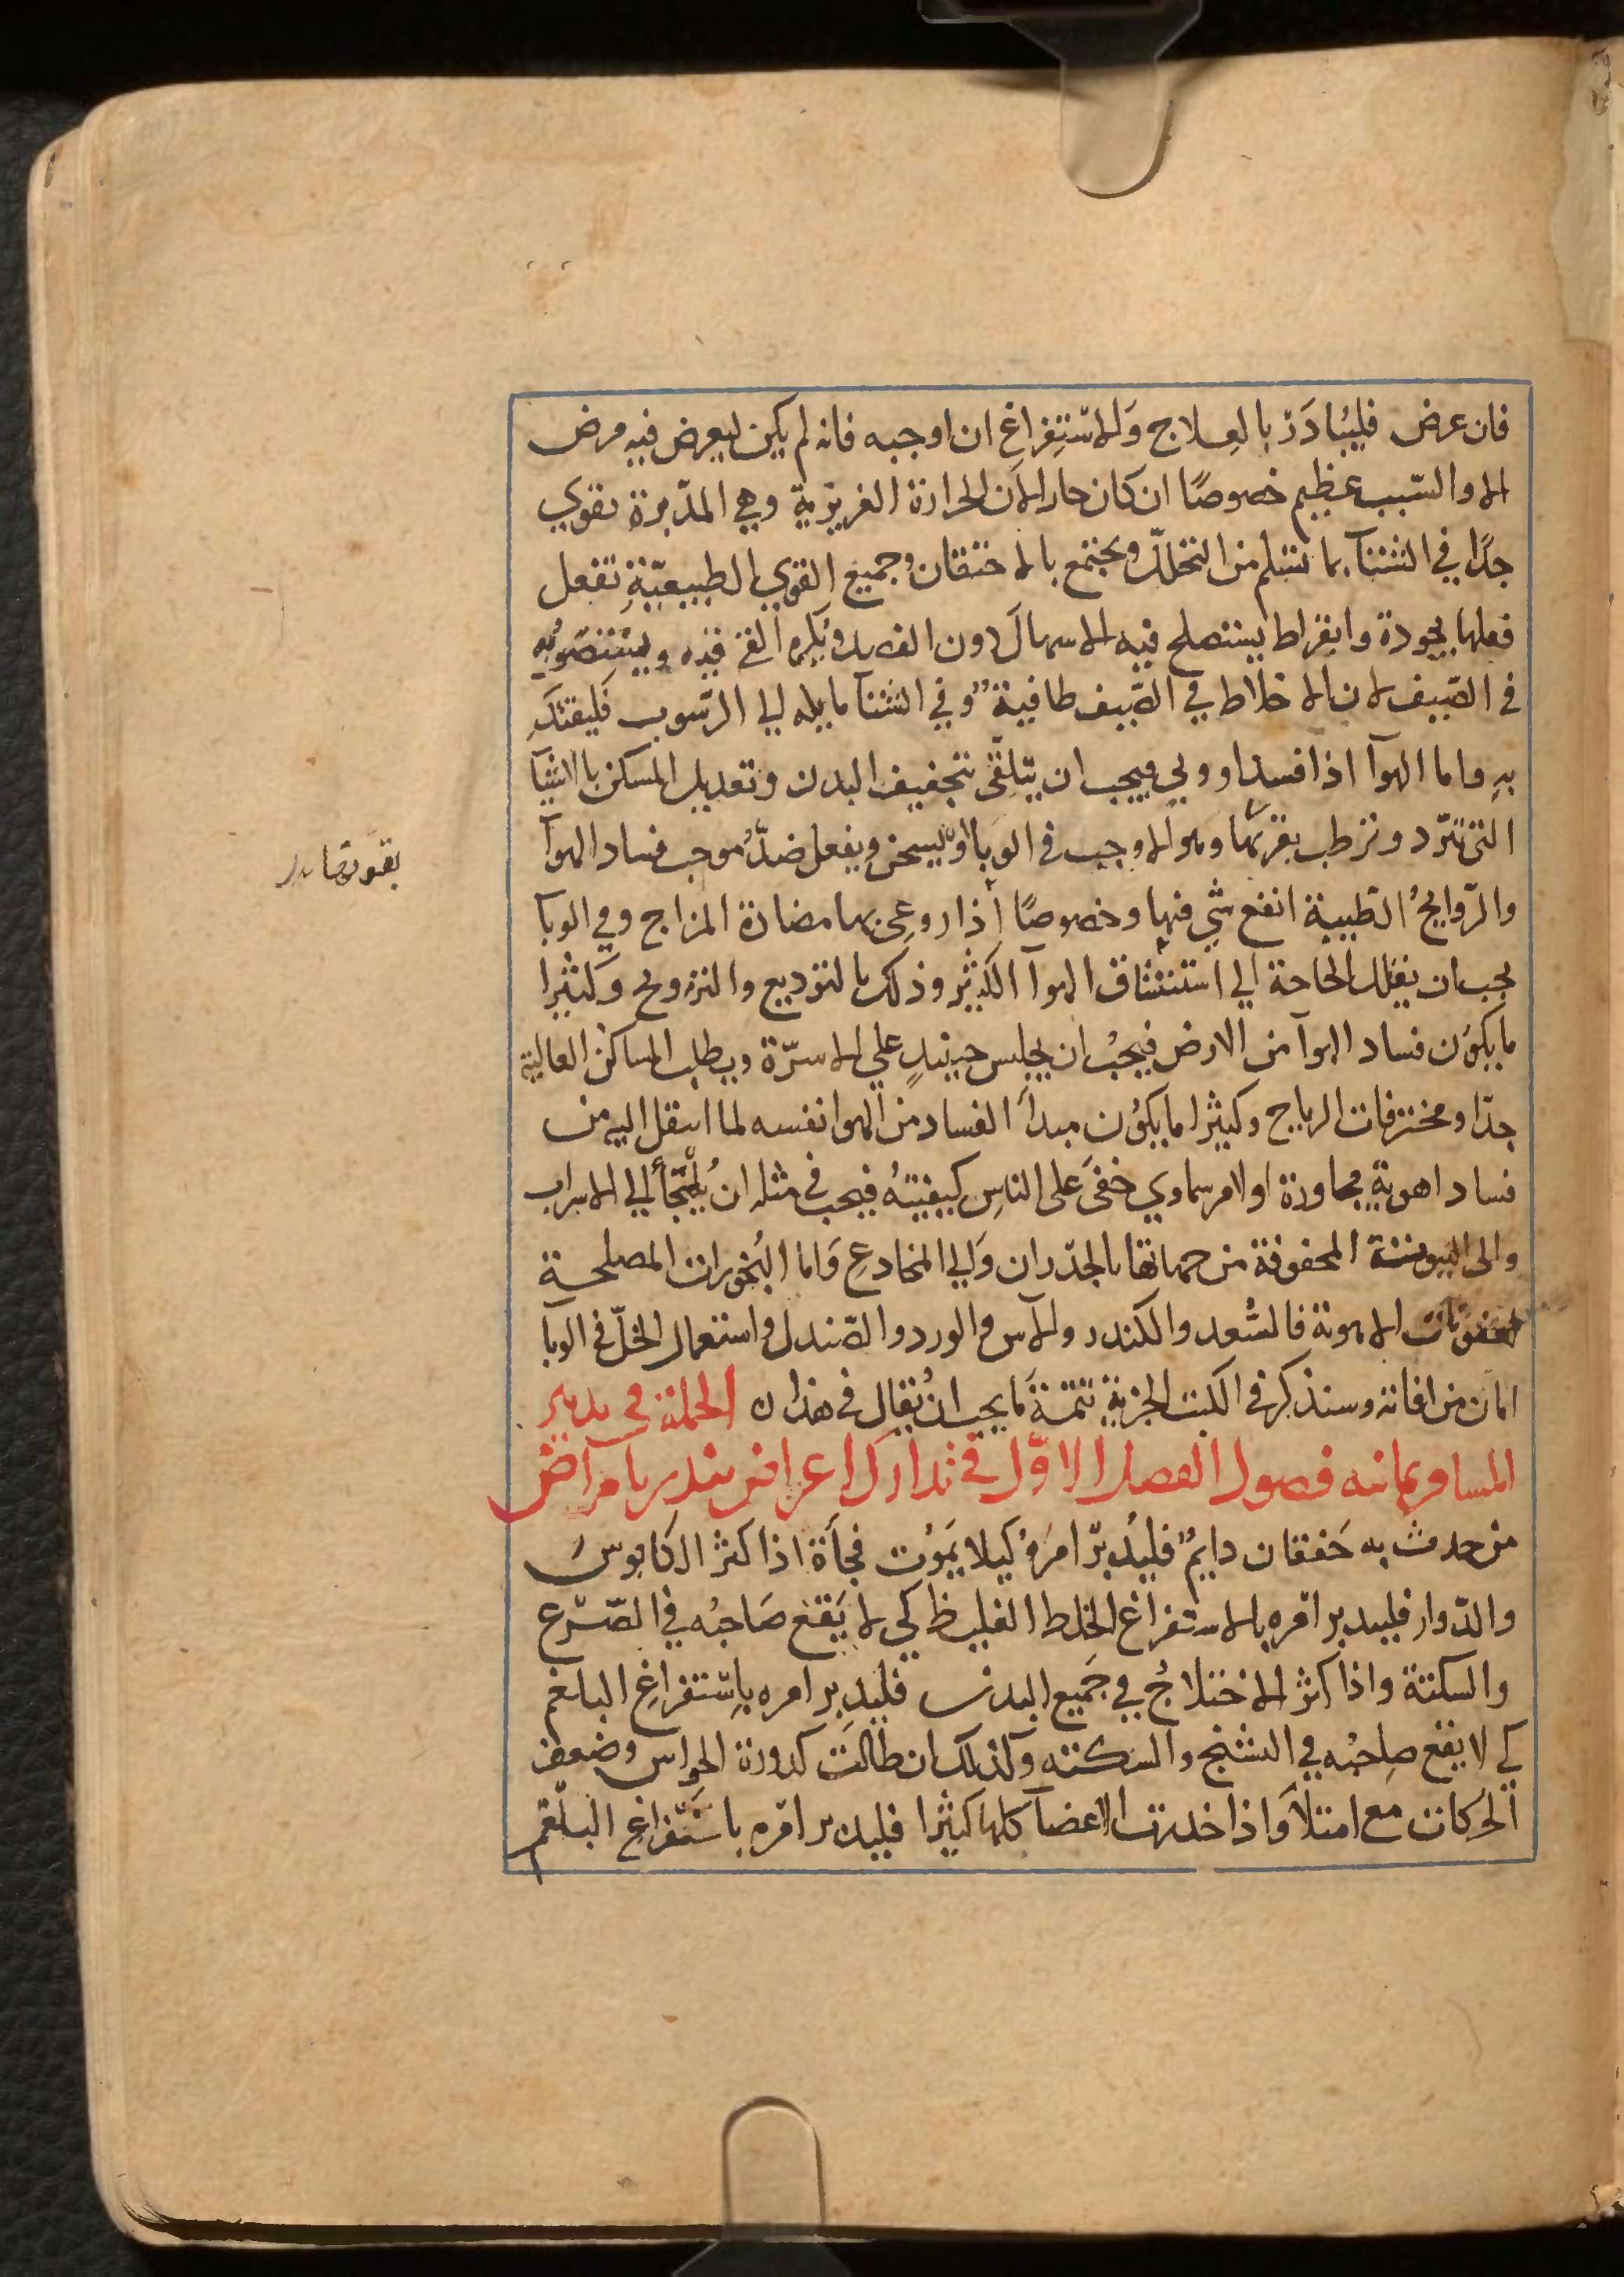 فان عرض فليُبادَر بالعِلاج وَالاستِفراغِ ان اوجبه فانه لم يكن ليعرض فيه مرض
الا والسّبب عظيم خصوصًا ان كان حارا لان الحرارة الغريزية وهي المدّبرة تقوي
جدًا في الشتآ بما تسلم من التحلّل ويجتمع بالاحتقان وجميع القوي الطبيعيّةِ تفعل
فعلها بجودة وابقراط يستصلح فيه الاسهال دون الفصد ويكره القئ فيه ويستصوبه
في الصّيف لان الاخلاط في الصّيف طافية وفي الشتآ مايله الي الرّسوب فليقتدِ
بهِ واما الهوآ اذا فسد او وبي فيجب ان يتلقّى بتجفيف البدن وتعديل المسكن بالاشيآ
التي تبرّد وترطب بقوتها وهو الاوجب في الوبا اوّ يسخن ويفعل ضدّ موجب فساد الهوآ
والرّوايحُ الطّيبة انفع شي فيها وخصوصًا اذا روعي بها مضادة المزاج وفي الوبآ
يجب ان يقلل الحاحة الي استنشاق الهوآ الكثير وذلك بالتوديع والترويح وكثيرا
ما يكون فساد الهوآ من الارض فيجبُ ان يجلس حينيدٍ علي الاسرّة ويطلب المساكن العالية
جدّا ومخترقات الرياح وكثيرا ما يكون مبدأ الفساد من الهوا نفسه لما انتقل اليه من
فساد اهوية مجاورة او لامر سماوي خفى على الناسِ كيفيتهُ فيجب في مثله ان يُلتجأ الي الاسراب
والى البيوت المحفوفة من جهاتها بالجدّران وَالي المخادعِ وَاما البُخورات المصلحة
لعفونات الاهوية فالسُّعد والكندر والاس والورد والصّندل واستعمال الخلّ في الوبآ
امان من افاته وسنذكر في الكتب الجزية تتمة ما يجب ان يُقال في هذا ن الجملة في تدبير
المسافر ثمانية فصول الفصل الاوّل في تدارك اعراض تنذر بامراض
من حدث به خَفقان دايمٌ فليُدبّر امرهُ كيلا يَموُت فجأة اذا كثر الكابوس
والدّوار فليدبر امره بالاستفراغ الخلط الغليظ كي لا يَقع صَاحبُه في الصّرع
والسكتة واذا كثر الاختلاجُ في جَميع البدن فليدبر امره باِستفراغِ البلغم
كي لا يقع صاحبُه في التشنج والسكته وكذلك ان طالت كدورة الحواس وضعف
الحركات مع امتلا وَاذا خدرت الاعضآ كلها كثيرا فليدبر امره باستفراغِ البلغم
بقوتها